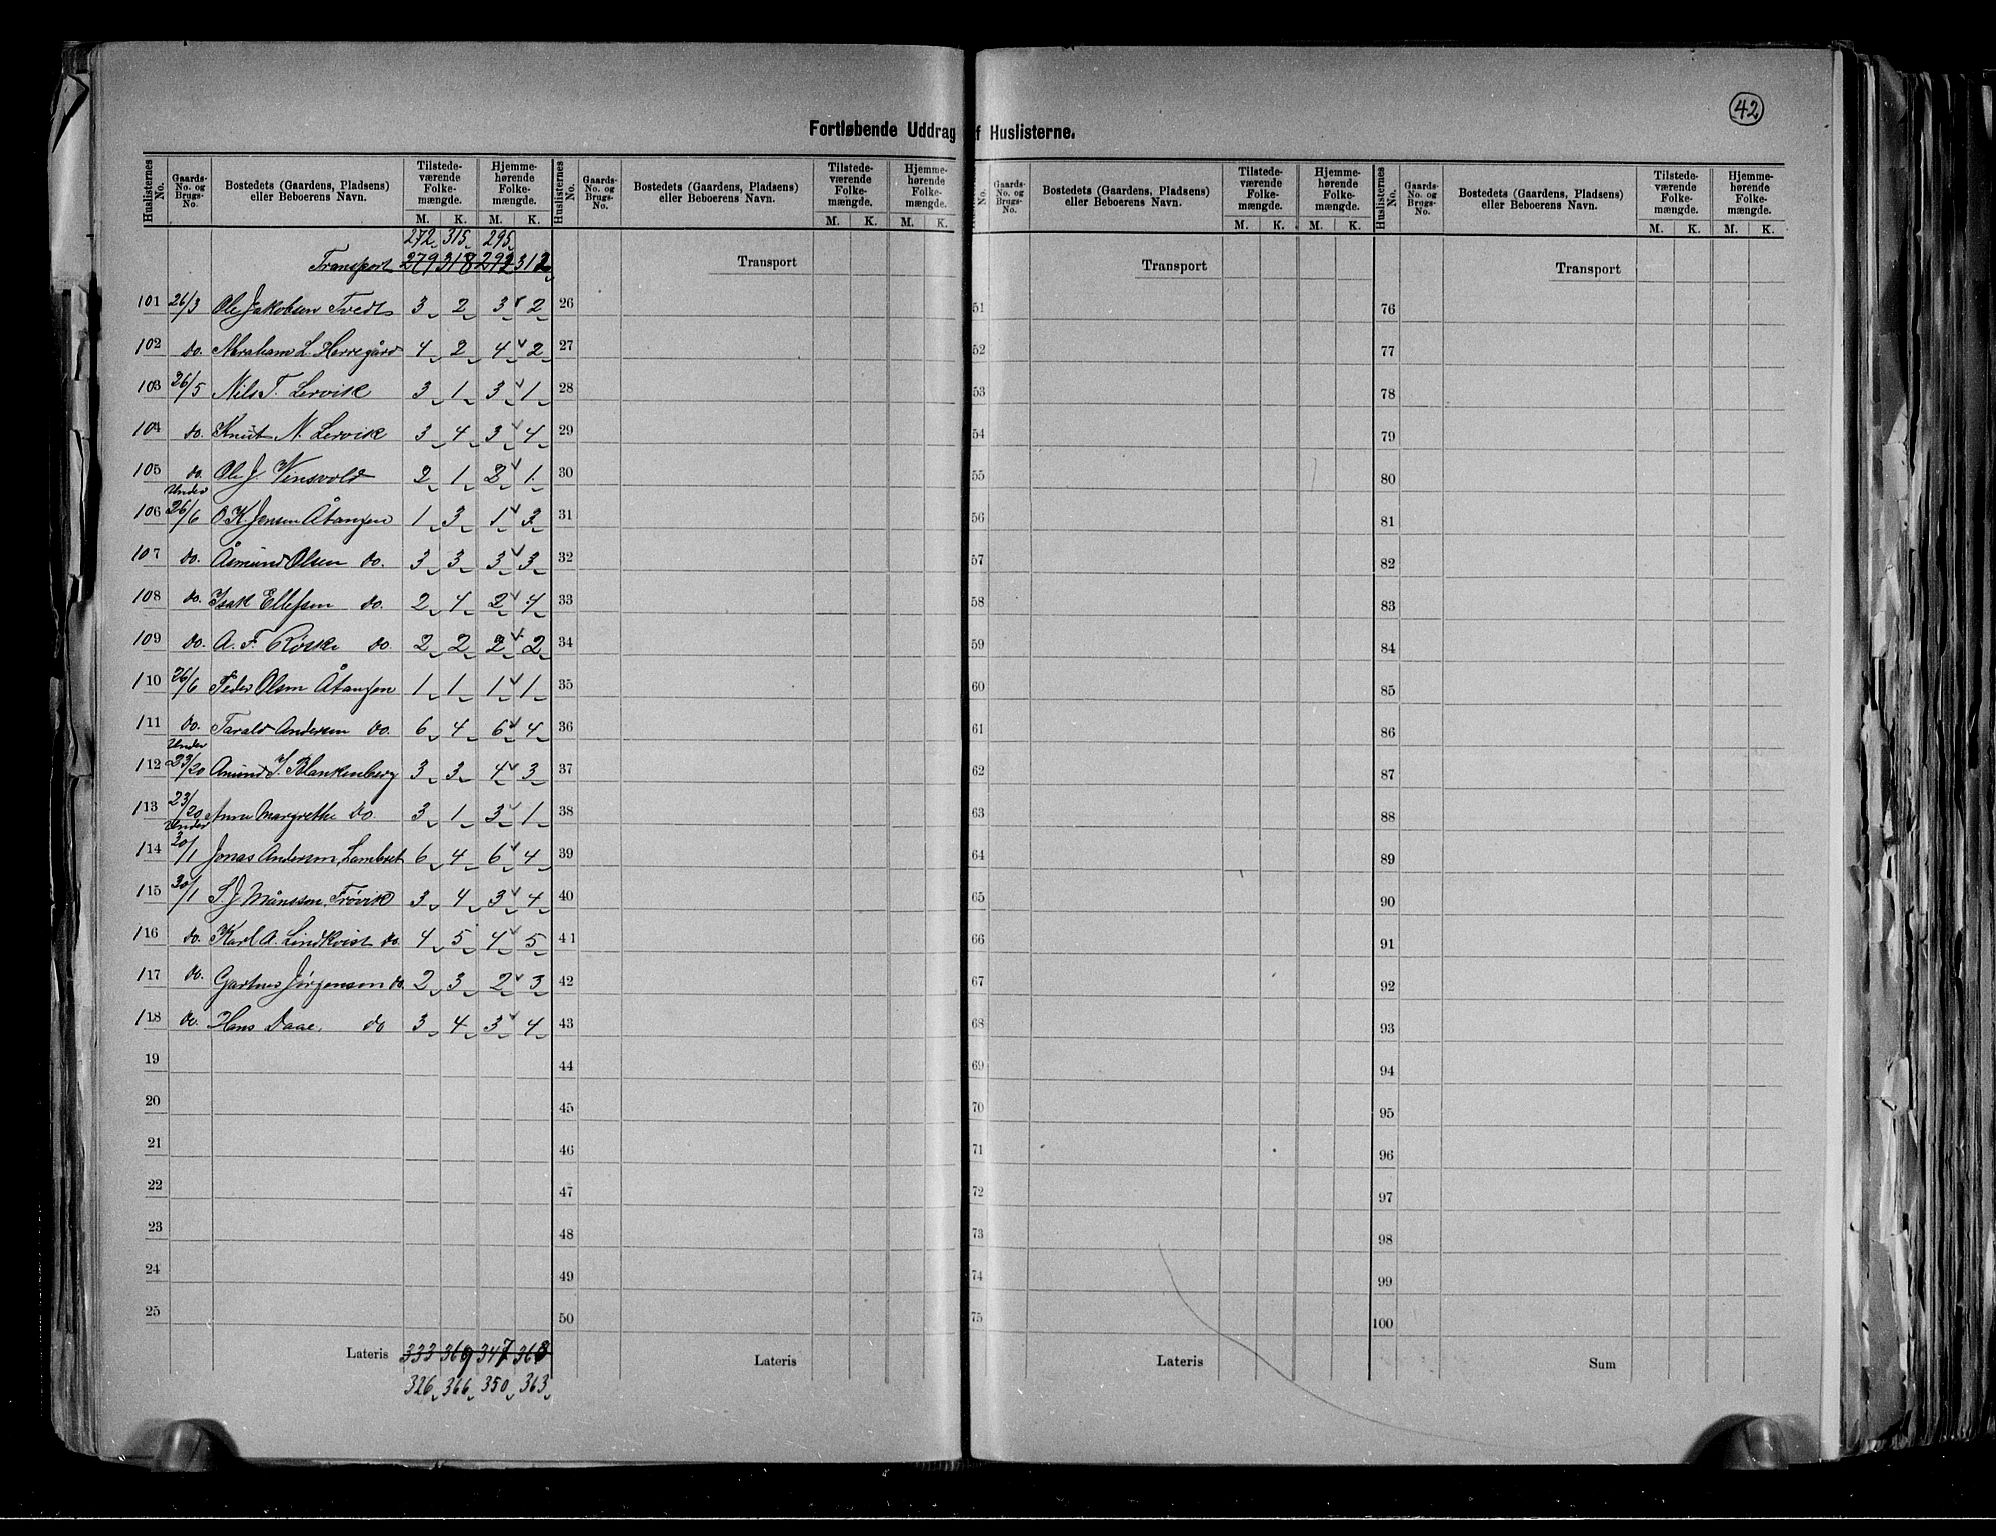 42
Fortløbende Uddrag af Huslisterne.
Huslisternes No. Gaards-No. og Brugs-No. Bostedets (Gaardens, Pladsens) eller Beboerens Navn. Tilstede-værende Folke-mængde. M. K. Hjemme-hørende Folke-mængde. M. K.
Huslisternes No. Gaards-No. og Brugs-No. Bostedets (Gaardens, Pladsens) eller Beboerens Navn. Tilstede-værende Folke-mængde. M. K. Hjemme-hørende Folke-mængde. M. K.
No. Gaards-No. og Brugs-No. Bostedets (Gaardens, Pladsens) eller Beboerens Navn. Tilstede-værende Folke-mængde. M. K. Hjemme-hørende Folke-mængde. M. K.
Huslisternes No. Gaards-No. og Brugs-No. Bostedets (Gaardens, Pladsens) eller Beboerens Navn. Tilstede-værende Folke-mængde. M. K. Hjemme-hørende Folke-mængde. M. K.
272 315 295
Transport 279 318 292 312
101 26/3 Ole Jakobsen Tvedt 3 2 3 2
102 do. Abraham L. Herregård 4 2 4 2
103 26/5 Nils T. Lervik 3 1 3 1
104 do. Knut N. Lervik 3 4 3 4
105 do. Ole J. Vinsvold 2 1 2 1
Under
106 26/6 O. K. Jensen Åtangen 1 3 1 3
107 do. Åsmund Olsen do. 3 3 3 3
108 do. Isak Ellefsen do. 2 4 2 4
109 do. A. F. Röske do. 2 2 2 2
110 26/6 Peder Olsen Åtangen 1 1 1 1
111 do. Tarald Andersen do. 6 4 6 4
Under
112 23/20 Amund J. Blankenberg 3 3 4 3
113 23/20 Anne Margrethe do 3 1 3 1
Under
114 30/1 Jonas Andersen, Lambret 6 4 6 4
115 30/1 S. J. Månsson, Frøvik 3 4 3 4
116 do. Karl A. Lindkvist do. 4 5 4 5
117 do. Gartner Jörgensen do. 2 3 2 3
118 do. Hans Daae. do 3 4 3 4
19
20
21
22
23
24
25
Lateris 333 369 347 363
326 366 350 363
Transport
26
27
28
29
30
31
32
33
34
35
36
37
38
39
40
41
42
43
44
45
46
47
48
49
50
Lateris
Transport
51
52
53
54
55
56
57
58
59
60
61
62
63
64
65
66
67
68
69
70
71
72
73
74
75
Lateris
Transport
76
77
78
79
80
81
82
83
84
85
86
87
88
89
90
91
92
93
94
95
96
97
98
99
100
Sum